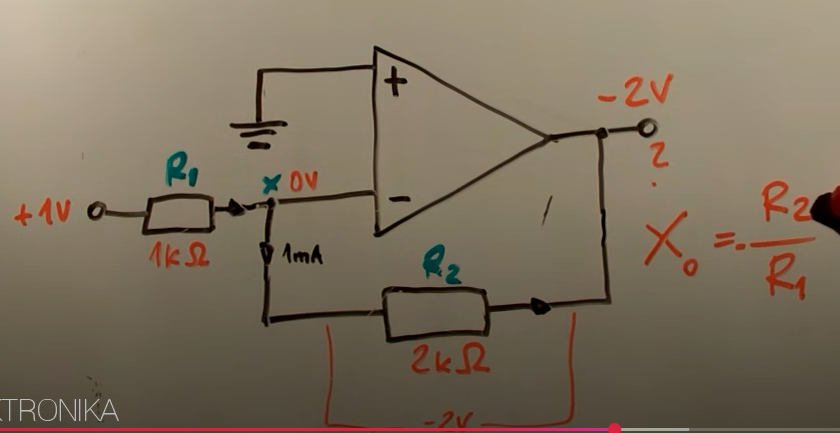 +
-2V
R1
x 0V
-
?
+1V
1kΩ
1mA
R2
2kΩ
-2V
X0 = - R2
R1
KTRONIKA